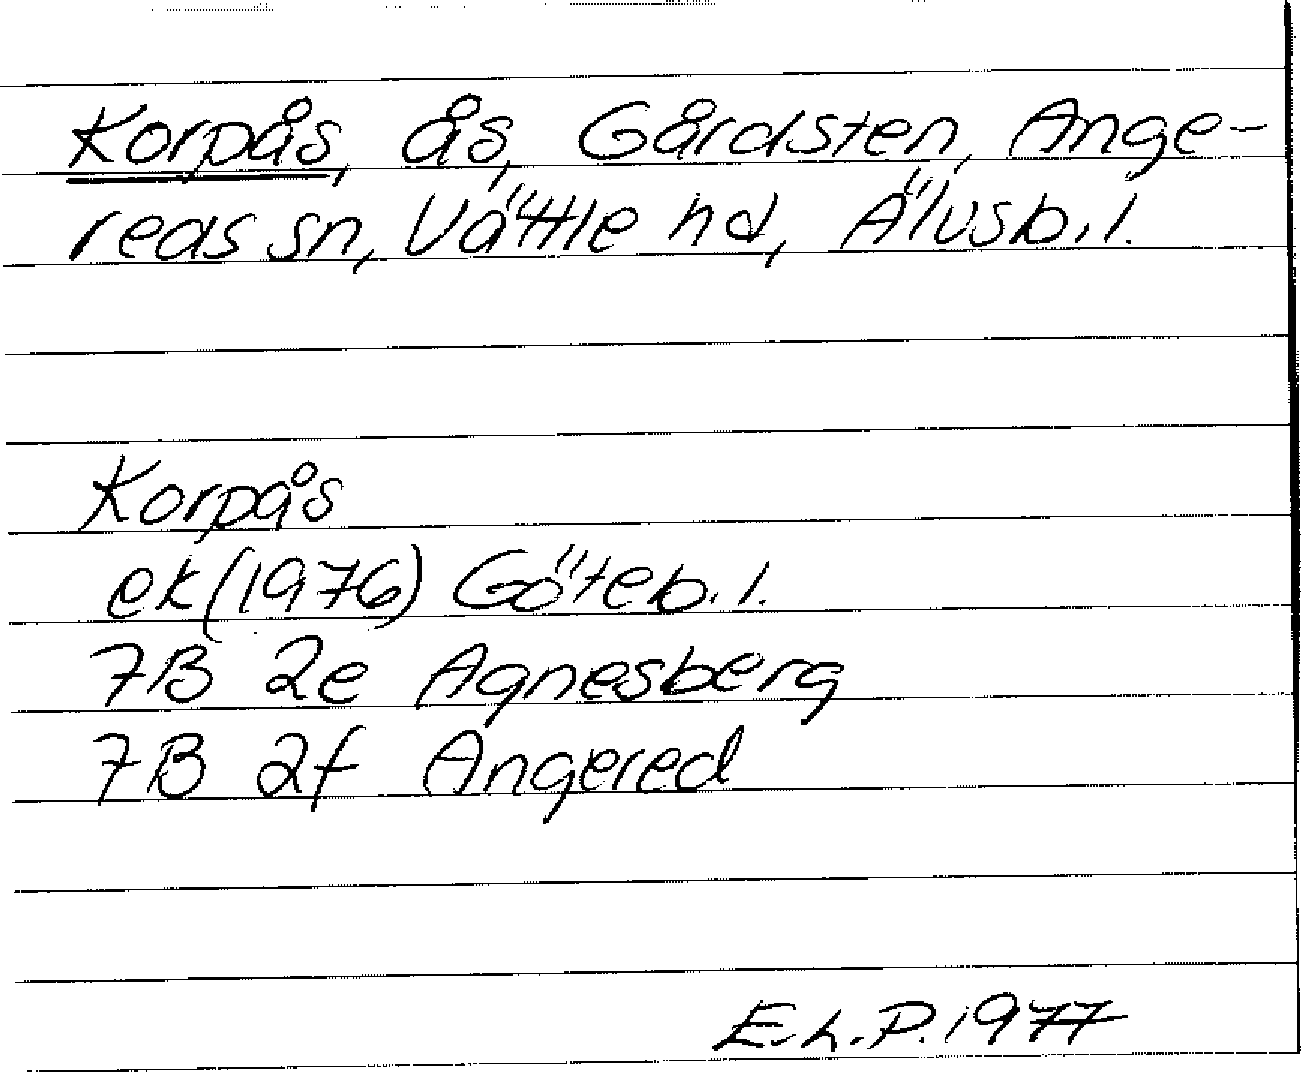 Korpås, ås, Gårdsten, Ange-
reds sn, Vättle hd, Älvsb.l.
Korpås
ek (1976) Göteb.l.
7B 2e Agnesberg
7B 2f Angered
E.L.P. 1977